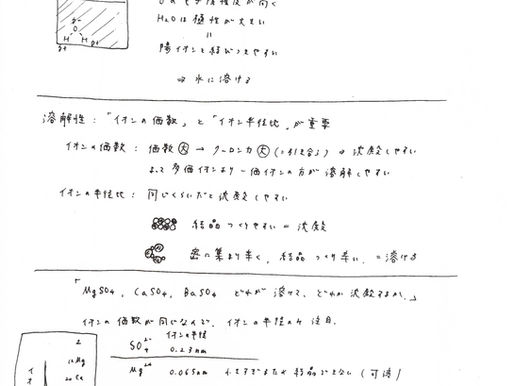 Oの電気陰性度が高く
H₂Oは極性が大きい
δ-
O
H H
δ+ δ+
=
陽イオンと結びつきやすい
⇒ 水に溶ける
溶解性:「イオンの価数」と「イオン半径比」が重要
イオンの価数: 価数大 → クーロン力大 (=引き合う) ⇒ 沈殿しやすい
よって 多価イオンより一価イオンの方が溶解しやすい
イオンの半径比: 同じくらいだと沈殿しやすい
結晶つくりやすい = 沈殿
密に集まり辛く、結晶つくり辛い = 溶ける
「MgSO₄, CaSO₄, BaSO₄ どれが溶けて、どれが沈殿するか。」
イオンの価数が同じなんで、イオンの半径のみ注目.
イオン半径
SO₄²⁻ 0.23nm
Mg²⁺ 0.065nm 小さすぎるため結晶できない (可溶)
2
12Mg
20Ca
イオ